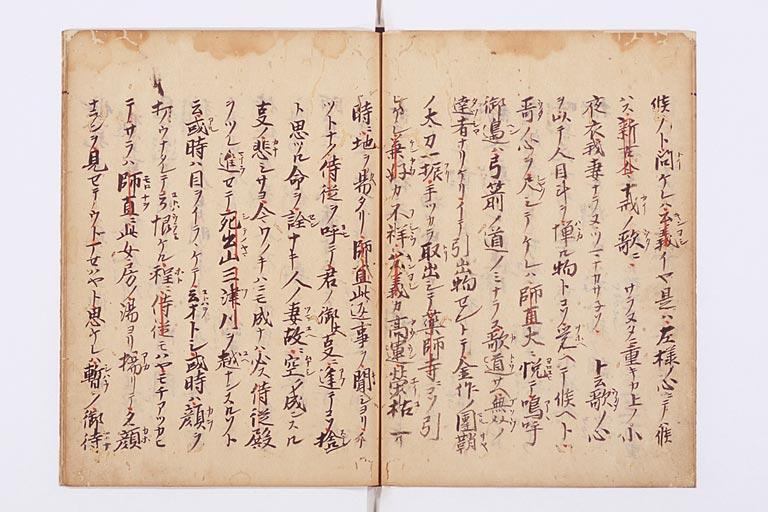 候ノト問ケレハ公義イヤ是ハ左様ノ心ニテハ候
ハス新古今ノ十戒ノ歌ニ サラヌタニ重キカ上ノ小
夜衣我妻ナラヌツマナカサネソ ト云歌ノ心
ヲ以テ人目斗ヲ憚ル物トコソ覚ヘテ候ヘト
哥ノ心ヲ尺シテケレハ師直大ニ悦テ嗚呼
御邊ハ弓箭ノ道ノミナラス歌道サヘ無双ノ
達者ナリケリイテ引出物セントテ金作ノ團鞘
ノ太刀一振手ツカラ取出シテ薬師寺ニコソ引
レケレ兼好カ不祥公義カ高運栄枯一
時ニ地ヲ易タリ師直此返事ヲ聞シヨリ
ツトナク侍従ヲ呼テ君ノ御大事ニ逢テコソ捨
ト思ツル命ヲ詮ナキ人ノ妻故ニ空ク成スル
事ノ悲シサヨ今ワノキハニモ成ナハ必ス侍従殿
ヲツレ進セテ死出山三津川ヲ越ナンスルソト
云或時ハ目ヲイラヽケテ云オトシ或時ハ顔ヲ
打ウナタレテ云恨ケル程ニ侍従モハヤモチアツカヒ
テサラハ師直ニ此女房ノ湯ヨリ揚リテタヽ顔
ナランヲ見セテウトマセハヤト思ケレハ暫ク御待